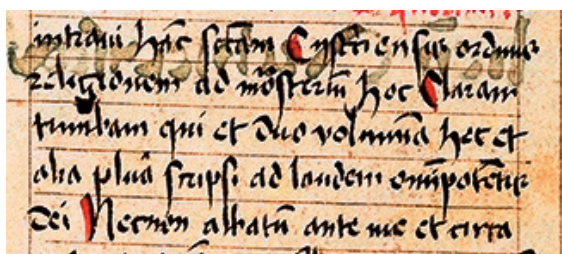 intraui hāc sctām Cysterciensis ordinis
religionem ad mōsteriū hoc Claram
tumbam qui et duo volumina hec et
alia plura scripsi ad laudem omīpotētis
dei Necnon abbatū ante me et circa